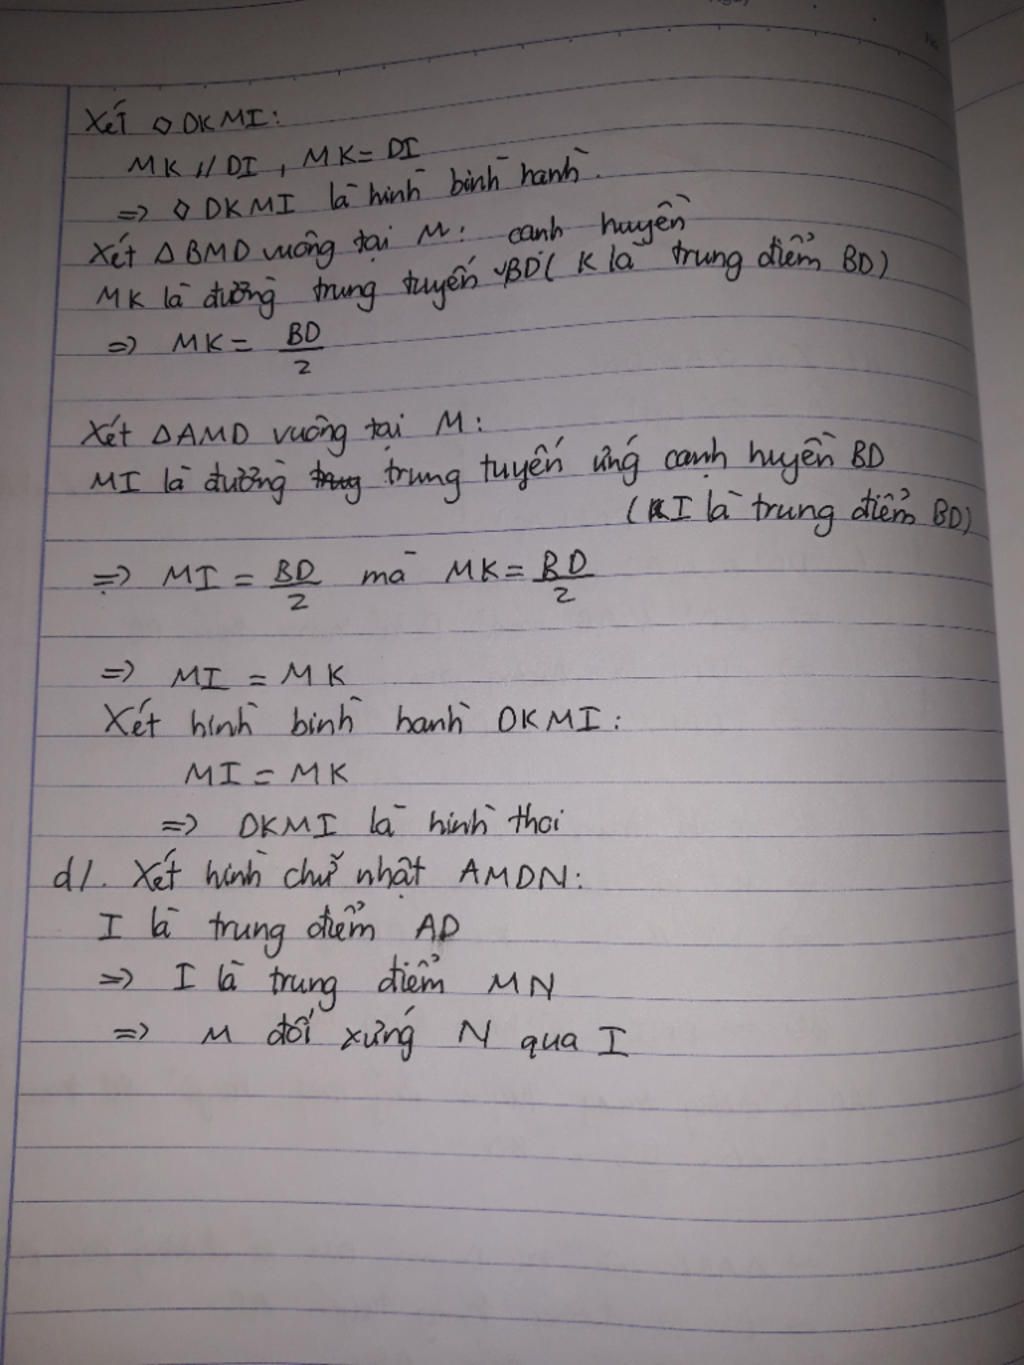 Xét ◇ DKMI:
MK // DI , MK = DI
=> ◇ DKMI là hình bình hành.
Xét Δ BMD vuông tại M: cạnh huyền
MK là đường trung tuyến ˅BD ( K là trung điểm BD)
=> MK = BD/2
Xét ΔAMD vuông tại M:
MI là đường trung trung tuyến ứng cạnh huyền BD
(I là trung điểm BD)
=> MI = BD/2 mà MK = BD/2
=> MI = MK
Xét hình bình hành DKMI:
MI = MK
=> DKMI là hình thoi
d/. Xét hình chữ nhật AMDN:
I là trung điểm AD
=> I là trung điểm MN
=> M đối xứng N qua I